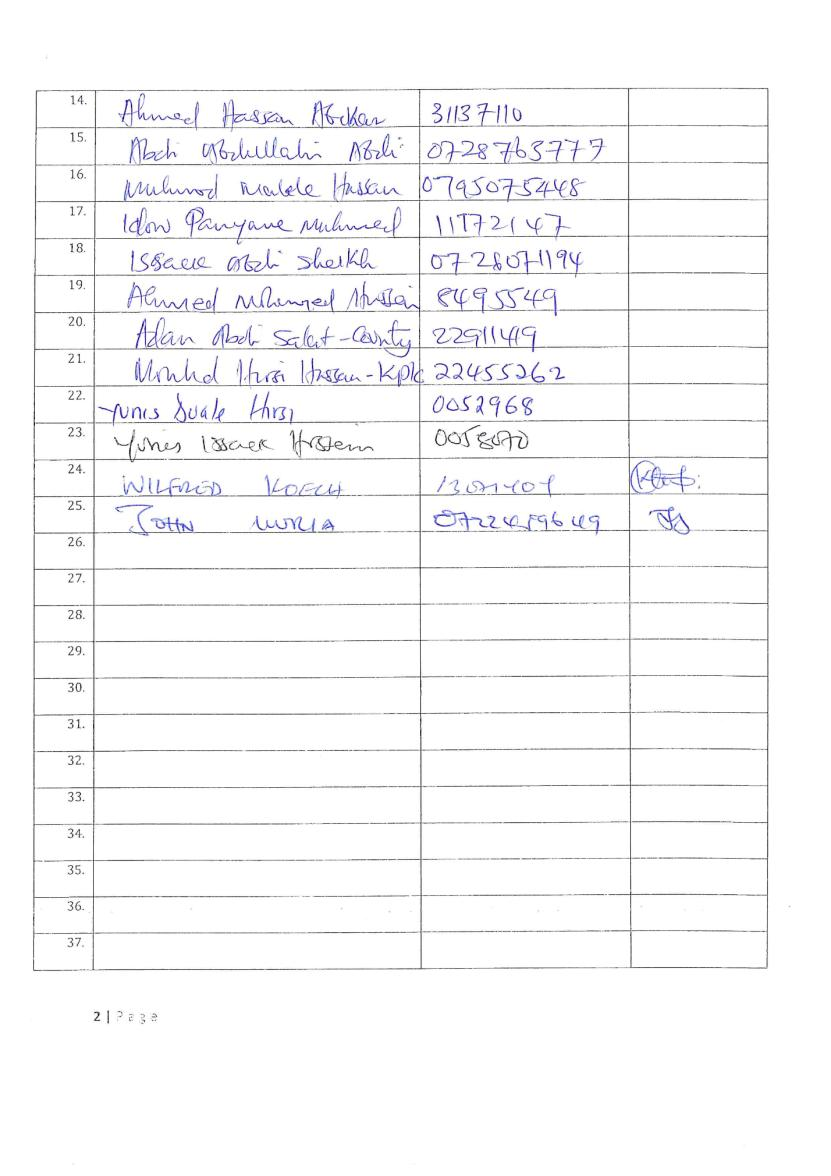 14. Ahmed Hassan Abikar 31137110
15. Abdi Abdullahi Abdi 0728763777
16. Muhmod Malele Hassan 0795075448
17. Idow Panyane Muhumed 11172147
18. Issack Abdi Sheikh 0728071194
19. Ahmed Mohamed Hussein 8495549
20. Adan Abdi Salat-County 22911419
21. Hirsi Hassan-Kplc 22455262
22. Yunis Suale Hirsi 0052968
23. Yunis Issack Hussein
24. WILFRED KOECH
25. JOHN 0722459649
26.
27.
28.
29.
30.
31.
32.
33.
34.
35.
36.
37.
2 | Page